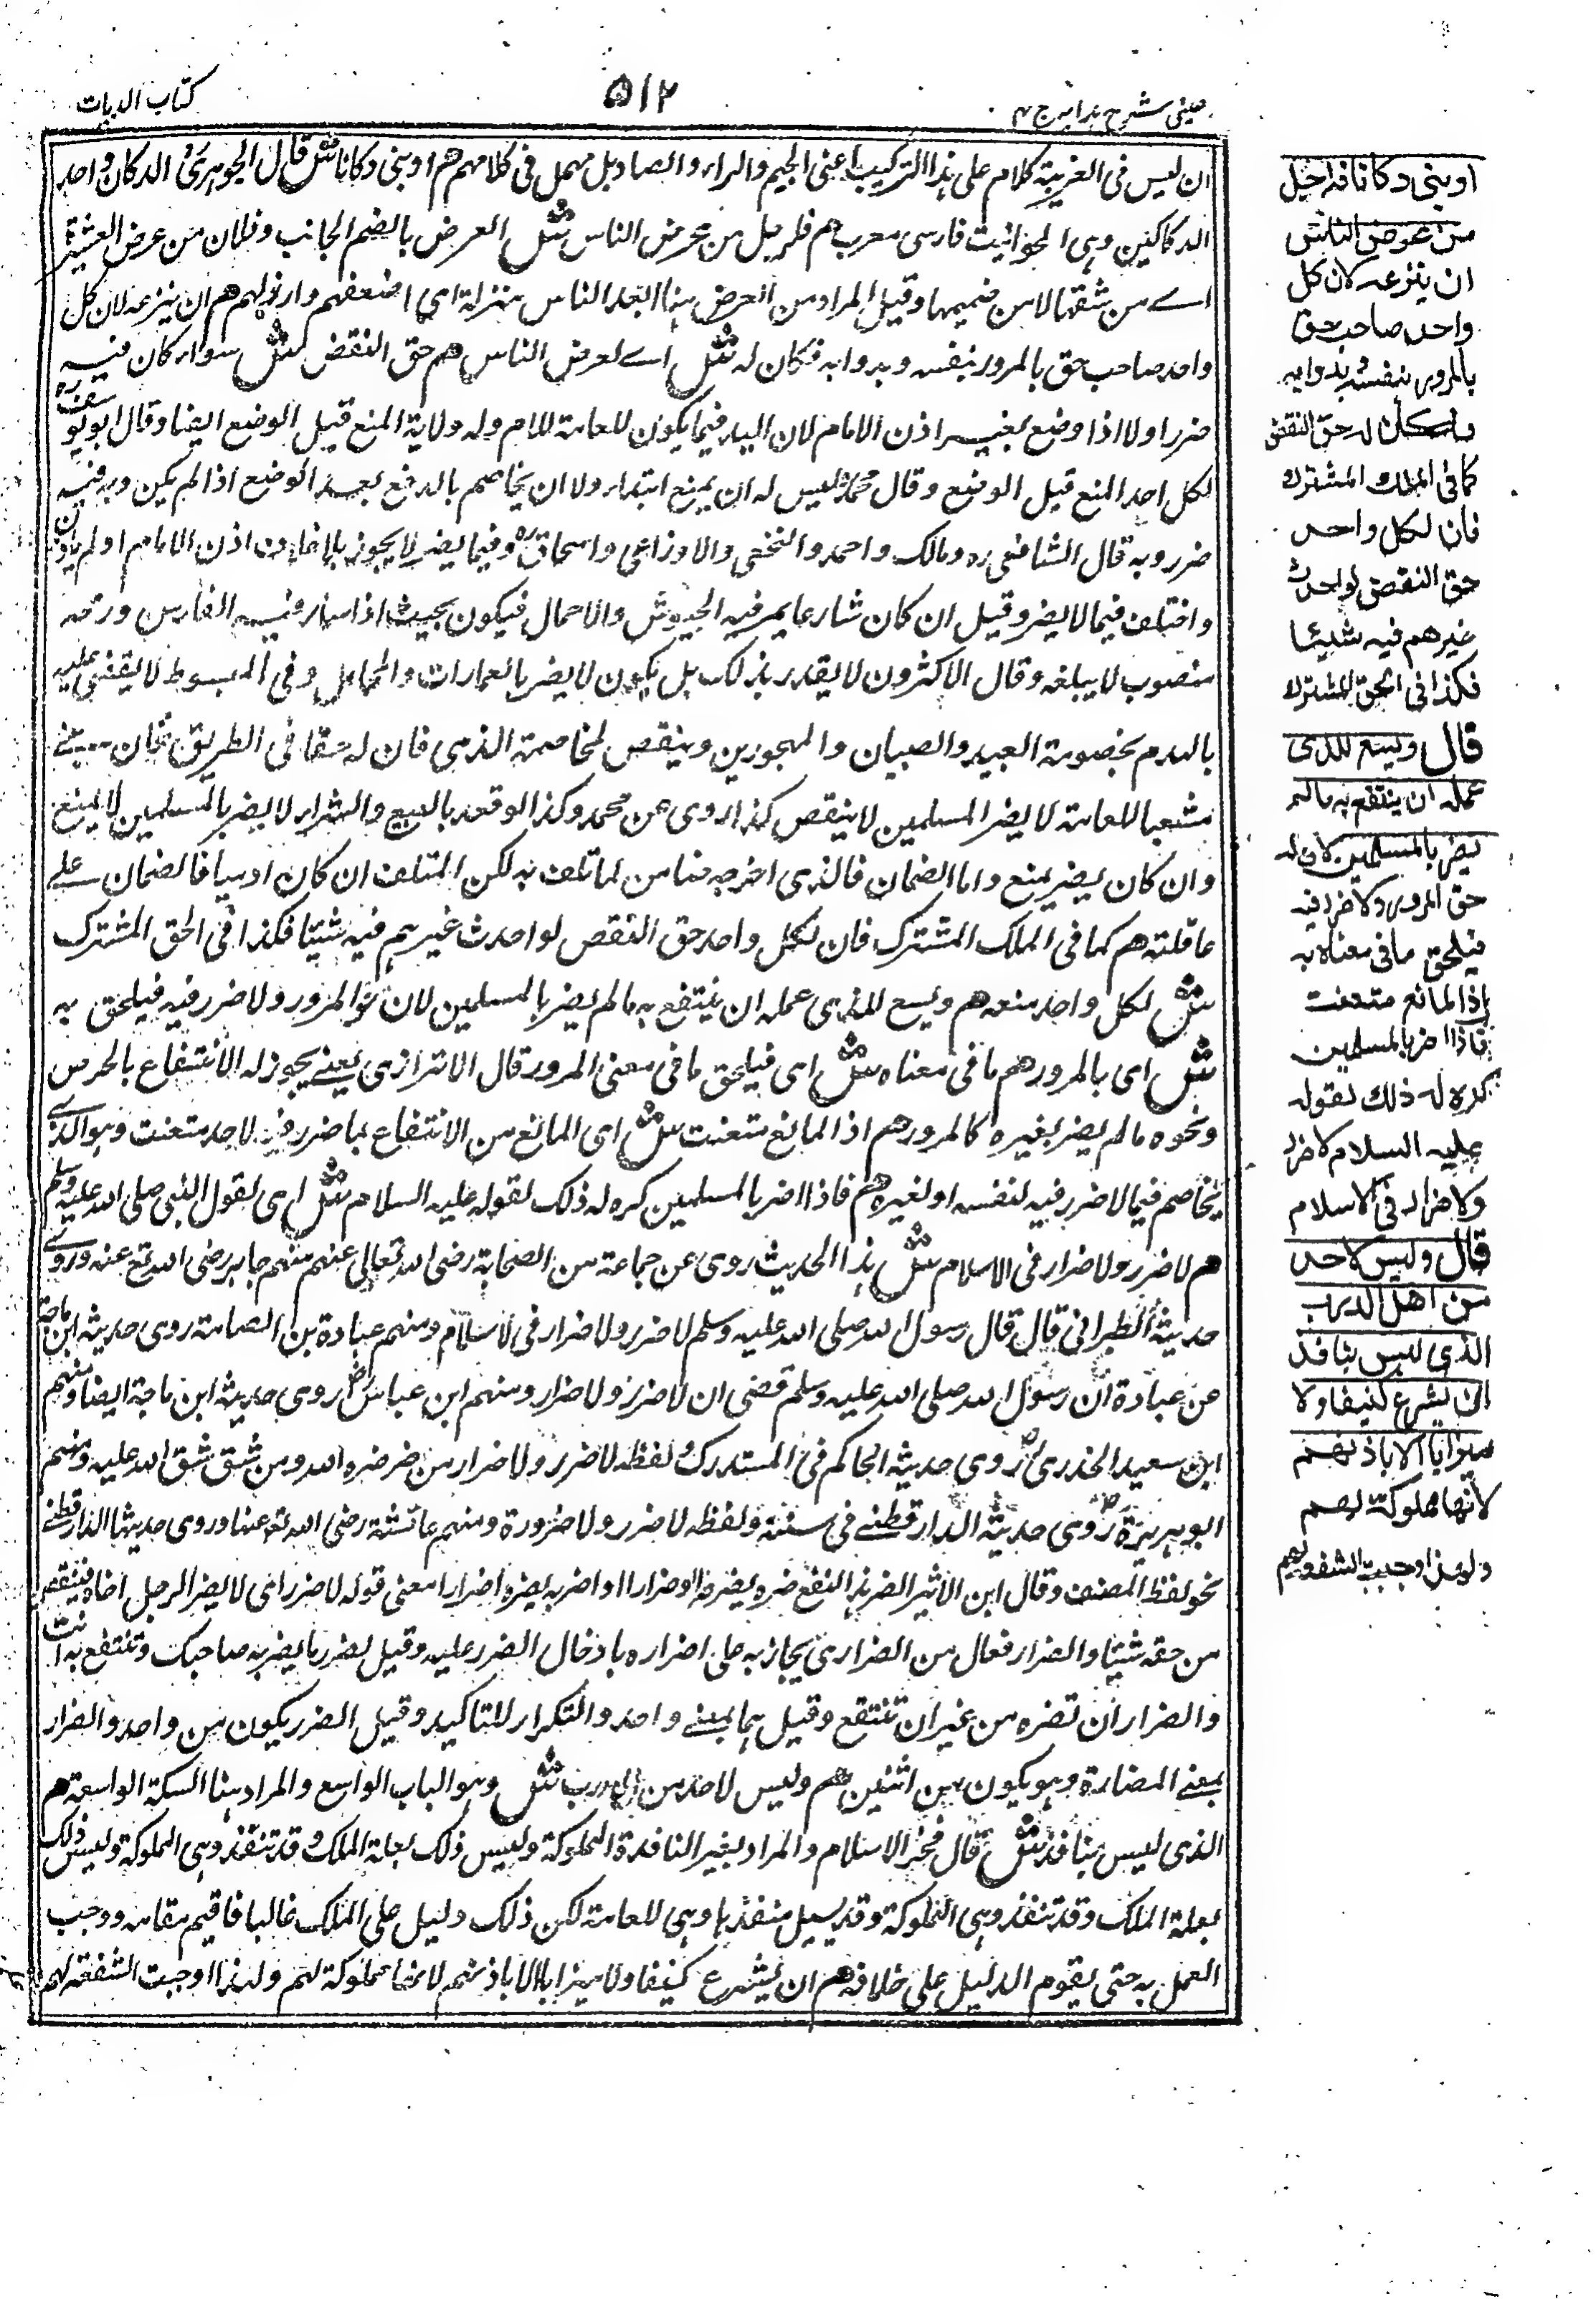 عینی شرح ہدایہ ج ۴
۵۱۲
کتاب الدیات
ان لیس فی العربیۃ کلام علی ہذا الترکیب اعنی الجیم والراء والصاد بل مہمل فی کلامہم هم او بنی دکانا ش قال الجوہری الدکان واحد
الدکاکین وہی الحوانیت فارسی معرب هم فلرجل من عرض الناس ش العرض بالضم الجانب وفلان من عرض العشیرۃ
اے من شقہا لا من صمیمہا وقیل المراد من العرض ہنا ابعد الناس منزلۃ ای اضعفہم وارذلہم هم ان ینزعہ لان کل
واحد صاحب حق بالمرور بنفسہ وبدوابہ فکان لہ ش اے لعرض الناس هم حق النقض ش سواء کان فیہ
ضرر اولا اذا وضع بغیر اذن الامام لان الید فیما یکون للعامۃ للامام ولہ ولایۃ المنع قبل الوضع ایضا وقال ابو یوسف رہ
لکل احد المنع قبل الوضع وقال محمد لیس لہ ان یمنع ابتداء ولا ان یخاصم بالدفع بعد الوضع اذا لم یکن وبہ فیہ
ضرر وبہ قال الشافعی رہ ومالک واحمد والنخعی والاوزاعی واسحاق رہ وفیما یضر لا یجوز بلا خلاف اذن الامام او لم یاذن
واختلف فیما لا یضر وقیل ان کان شارعا یمر فیہ الجیوش والاحمال فیکون بحیث اذا سار فیہ الفارس ورمحہ
منصوب لا یبلغہ وقال الاکثرون لا یقدر بذلک بل یکون لا یضر بالعمارات والمحامل وفی المبسوط لا یقضی علیہ
بالہدم بخصومۃ العبید والصبیان والمحجورین وینقض لمخاصمۃ الذمی فان لہ حقا فی الطریق فان بنی
مشعبا للعامۃ لا یضر المسلمین لا ینقض کذا روی عن محمد وکذا لو قعد بالبیع والشراء لا یضر بالمسلمین لا یمنع
وان کان یضر یمنع واما الضمان فالذی اخرجہ ضامن لما تلف بہ لکن المتلف ان کان ادمیا فالضمان علے
عاقلتہ هم کما فی الملک المشترک فان لکل واحد حق النقض لو احدث غیرہم فیہ شیئا فکذا فی الحق المشترک
ش لکل واحد منعہ هم ویسع للذی عملہ ان ینتفع بہ ما لم یضر بالمسلمین لان لہ حق المرور ولا ضرر فیہ فیلحق بہ
ش ای بالمرور هم ما فی معناہ ش ای فیلحق ما فی معنی المرور قال الاترازی یعنی یجوز لہ الانتفاع بالجرص
ونحوہ ما لم یضر بغیرہ کالمرور هم اذا المانع متعنت ش ای المانع من الانتفاع بما ضرر فیہ لاحد متعنت وہو الذے
یخاصم فیما لا ضرر فیہ لنفسہ او لغیرہ هم فاذا اضر بالمسلمین کرہ لہ ذلک لقولہ علیہ السلام ش ای لقول النبی صلی اللہ علیہ وسلم
هم لا ضرر ولا ضرار فی الاسلام ش ہذا الحدیث روی عن جماعۃ من الصحابۃ رضی اللہ تعالی عنہم منہم جابر رضی اللہ تع عنہ وروے
حدیثہ الطبرانی قال قال رسول اللہ صلی اللہ علیہ وسلم لا ضرر ولا ضرار فی الاسلام ومنہم عبادۃ بن الصامت روی حدیثہ ابن ماجۃ
عن عبادۃ ان رسول اللہ صلی اللہ علیہ وسلم قضی ان لا ضرر ولا ضرار ومنہم ابن عباس رض روی حدیثہ ابن ماجۃ ایضا ومنہم
ابن سعید الخدری رض روی حدیثہ الحاکم فی المستدرک ولفظہ لا ضرر ولا ضرار من ضر ضرہ اللہ ومن شق شق اللہ علیہ ومنہم
ابو ہریرۃ رض روی حدیثہ الدارقطنے فی سننہ ولفظہ لا ضرر ولا ضرورۃ ومنہم عائشۃ رضی اللہ تع عنہا وروی حدیثہا الدارقطنے
نحو لفظ المصنف وقال ابن الاثیر الضر ضد النفع ضرہ یضرہ ضرا وضرارا واضر بہ یضرہ اضرارا معنی قولہ لا ضرر ای لا یضر الرجل اخاہ فینقصہ
من حقہ شیئا والضرار فعال من الضر ای یجازیہ علی اضرارہ بادخال الضرر علیہ وقیل الضرر ما یضر بہ صاحبک وتنتفع بہ انت
والضرار ان تضرہ من غیر ان تنتفع وقیل ہما بمعنے واحد والتکرار للتاکید وقیل الضرر یکون من واحد والضرار
بمعنے المضارۃ وہو یکون بین اثنین هم ولیس لاحد من اہل الدرب ش وہو الباب الواسع والمراد ہنا السکۃ الواسعۃ هم
الذی لیس بنافذ ش قال فخر الاسلام والمراد بغیر النافذۃ المملوکۃ ولیس ذلک بعلۃ الملک وقد تنفذ وہی المملوکۃ ولیس ذلک
بعلۃ الملک وقد تنفذ وہی المملوکۃ وقد یسیل منفذہا وہی للعامۃ لکن ذلک دلیل علی الملک غالبا فاقیم مقامہ ووجب
العمل بہ حتی یقوم الدلیل علی خلافہ هم ان یشرع کنیفا ولا میزابا الا باذنہم لانہا مملوکۃ لہم ولہذا اوجبت الشفعۃ لہم
او بنی دکانا فلرجل
من عرض الناس
ان ینزعہ لان کل
واحد صاحب حق
بالمرور بنفسہ وبدوابہ
فکان لہ حق النقض
کما فی الملك المشترك
فان لکل واحد
حق النقض لو احدث
غیرهم فیه شیئا
فکذا فی الحق المشترك
قال ویسع للذی
عمله ان ینتفع به مالم
یضر بالمسلمین لان له
حق المرور ولا ضرر فیه
فیلحق ما فی معناه به
اذ المانع متعنت
فاذا اضر بالمسلمین
کره له ذلك لقوله
علیه السلام لا ضرر
ولا ضرار فی الاسلام
قال ولیس لاحد
من اهل الدرب
الذی لیس بنافذ
ان یشرع کنیفا ولا
میزابا الا باذنهم
لانها مملوکة لهم
ولهذا وجبت الشفعة لهم